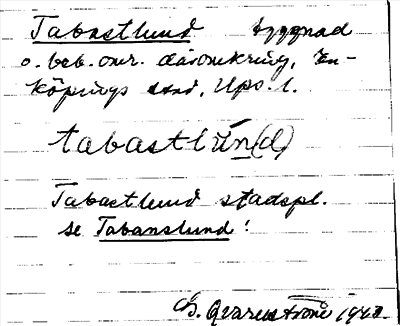 Tabastlund byggnad
o. beb. omr. däromkring, En-
köpings stad, Upps. l.
tabastlùn(d)
Tabastlund stadspl.
se Tabanslund!
G. Qvarnström 1942.